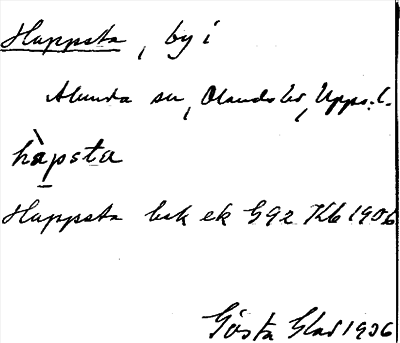 Happsta, by i
Alunda sn, Olands hd, Upps. l.
hàpsta
Happsta bsk ek G92 Kb 1906
Gösta Glad 1906